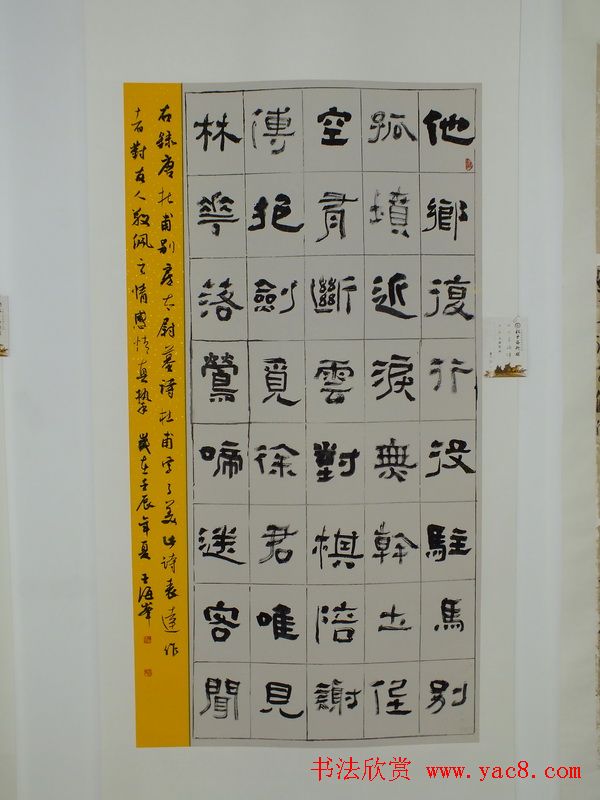 他鄉復行役駐馬別
孤墳近淚無幹土低
空有斷雲對棋陪謝
傅抱劍覓徐君唯見
林華落鶯啼送客聞
右録唐杜甫別房太尉墓詩杜甫寫了美此詩表達作
者對友人敬佩之情感情真摯 歲在壬辰年夏 王海峰
书法欣赏 www.yac8.com